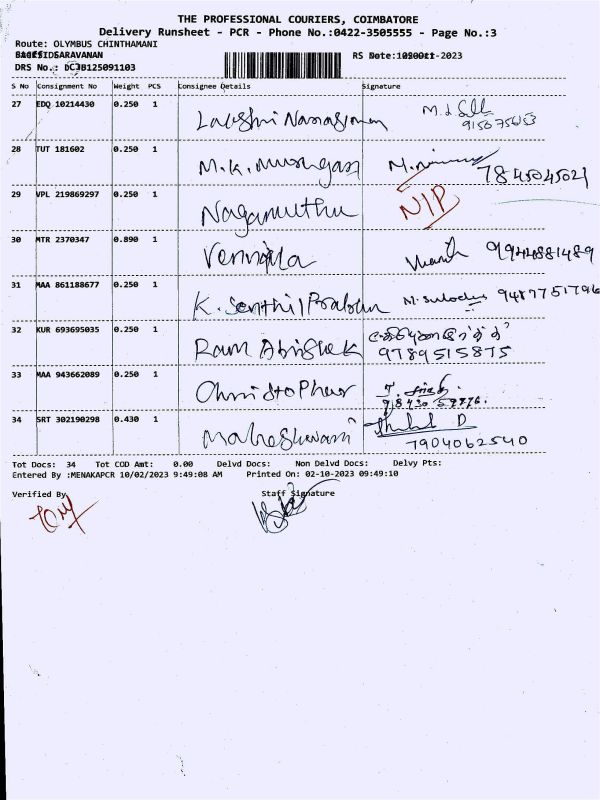 THE PROFESSIONAL COURIERS, COIMBATORE
Delivery Runsheet - PCR - Phone No.:0422-3505555 - Page No.:3
Route: OLYMBUS CHINTHAMANI
SARAVANAN RS Date: -2023
DRS No.: DCJB125091103
S No Consignment No Weight PCS Consignee Details Signature
27 EDQ 10214430 0.250 1 Lakshmi Narasimman
28 TUT 181602 0.250 1 M.K. Murugan 7845045021
29 VPL 219869297 0.250 1 Nagamuthu N/P
30 MTR 2370347 0.890 1 Vennila 9944881489
31 MAA 861188677 0.250 1 K. Senthil Prabhu 9487751796
32 KUR 693695035 0.250 1 Ram Abishek
9789515875
33 MAA 943662089 0.250 1 Christopher
34 SRT 302190298 0.430 1 Maheshwari D
7904062540
Tot Docs: 34 Tot COD Amt: 0.00 Delvd Docs: Non Delvd Docs: Delvy Pts:
Entered By :MENAKAPCR 10/02/2023 9:49:08 AM Printed On: 02-10-2023 09:49:10
Verified By Staff Signature